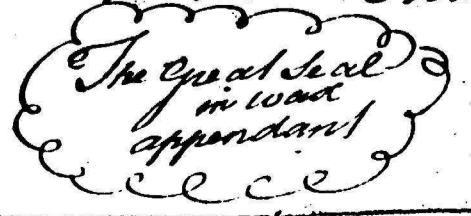 The Great Seal
in wax
appendant